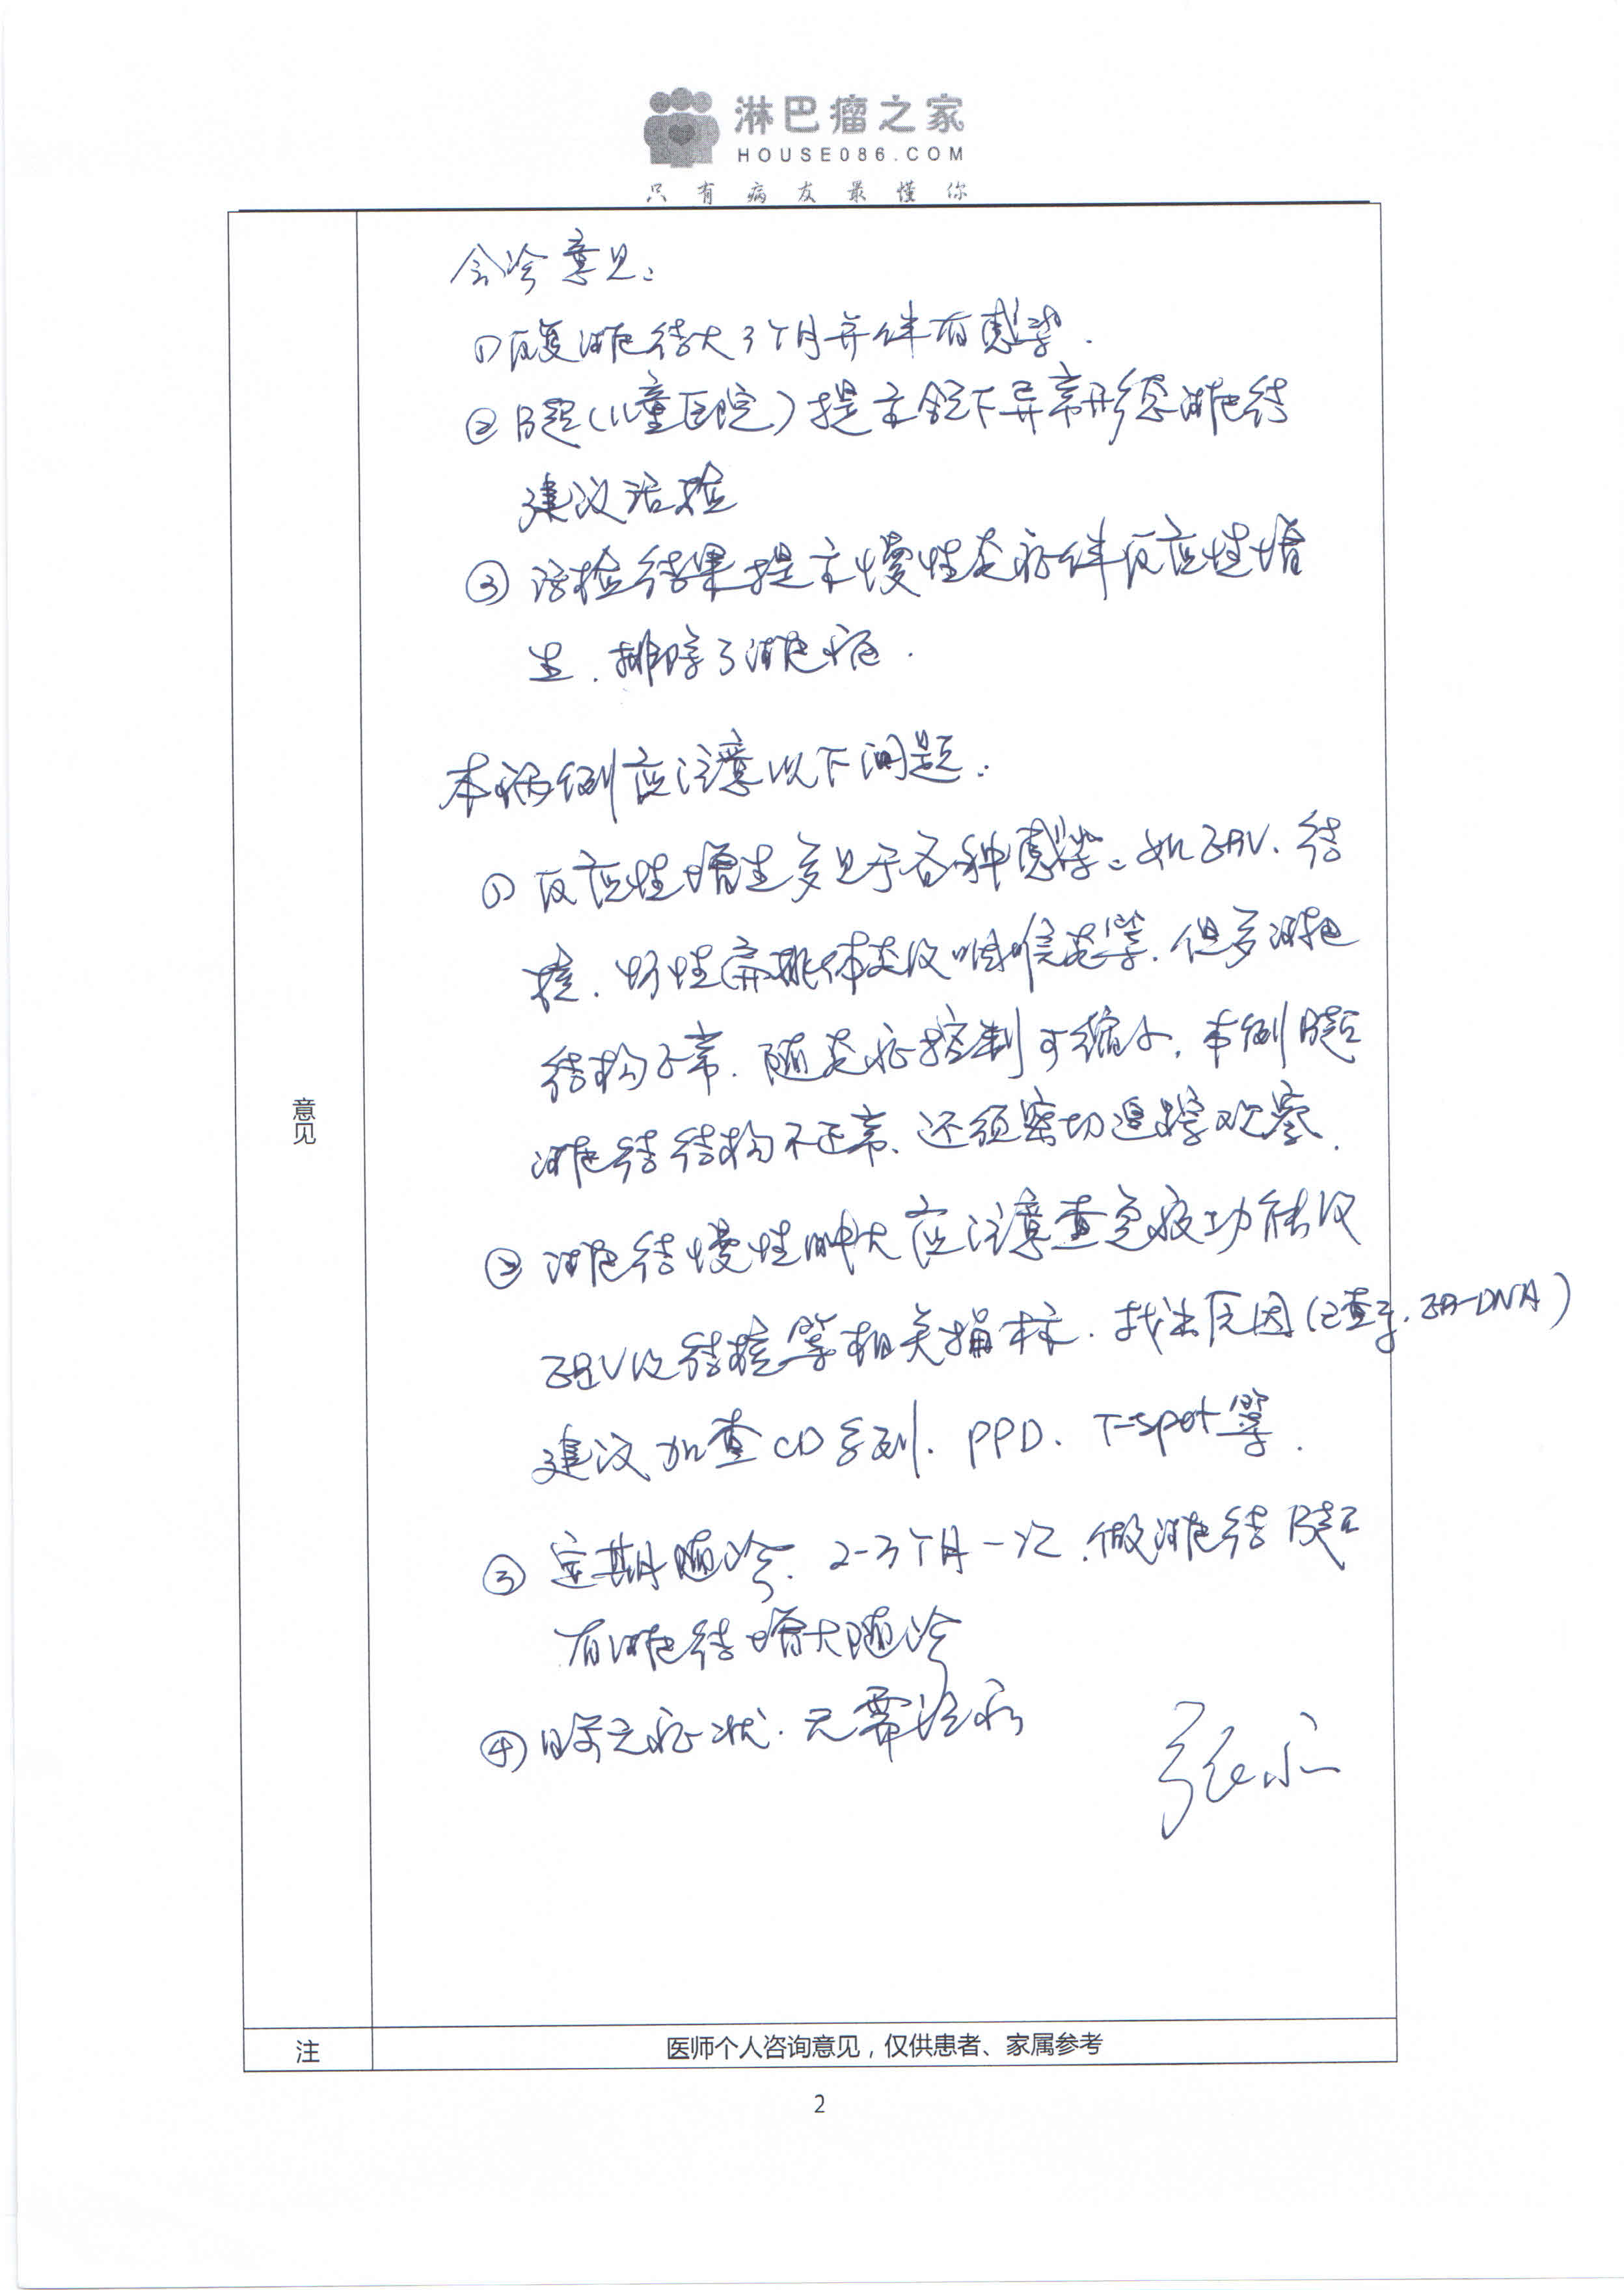 淋巴瘤之家
HOUSE086.COM
只有病友最懂你
会诊意见:
① 反复淋巴结大3个月并伴有感染.
② B超(儿童医院)提示颌下异常形态淋巴结
建议活检
③ 活检结果提示慢性炎症伴反应性增
生.排除了淋巴瘤.
本病例应注意以下问题:
① 反应性增生多见于各种感染:如EBV、结
核.慢性扁桃体炎及咽喉炎等.但多淋巴
结构正常.随炎症控制可缩小.本例B超
淋巴结结构不正常、还须密切追踪观察.
② 淋巴结慢性肿大应注意查免疫功能及
EBV及结核等相关指标.找出原因(已查 EB-DNA)
建议加查CD系列.PPD、T-spot等.
③ 定期随诊.2-3个月一次.做淋巴结B超
有淋巴结增大随诊
④ 目前无症状.无需治疗
张永
意见
注
医师个人咨询意见，仅供患者、家属参考
2